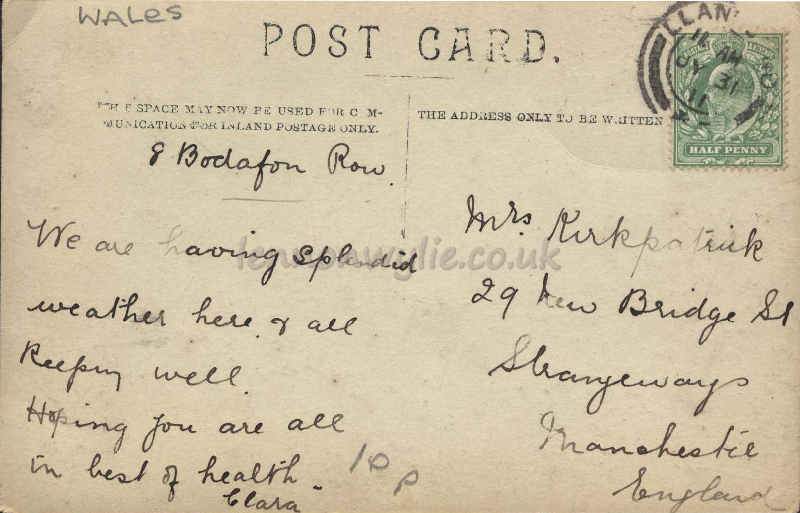 WALES
POST CARD.
THIS SPACE MAY NOW BE USED FOR COM-
MUNICATION FOR INLAND POSTAGE ONLY.
THE ADDRESS ONLY TO BE WRITTEN
LLAN
31
11
HALF PENNY
8 Bodafon Row.
We are having splendid
weather here & all
keeping well.
Hoping you are all
in best of health.
Clara
10p
Mrs Kirkpatrick
29 New Bridge St
Strangeways
Manchester
England
lensonwylie.co.uk